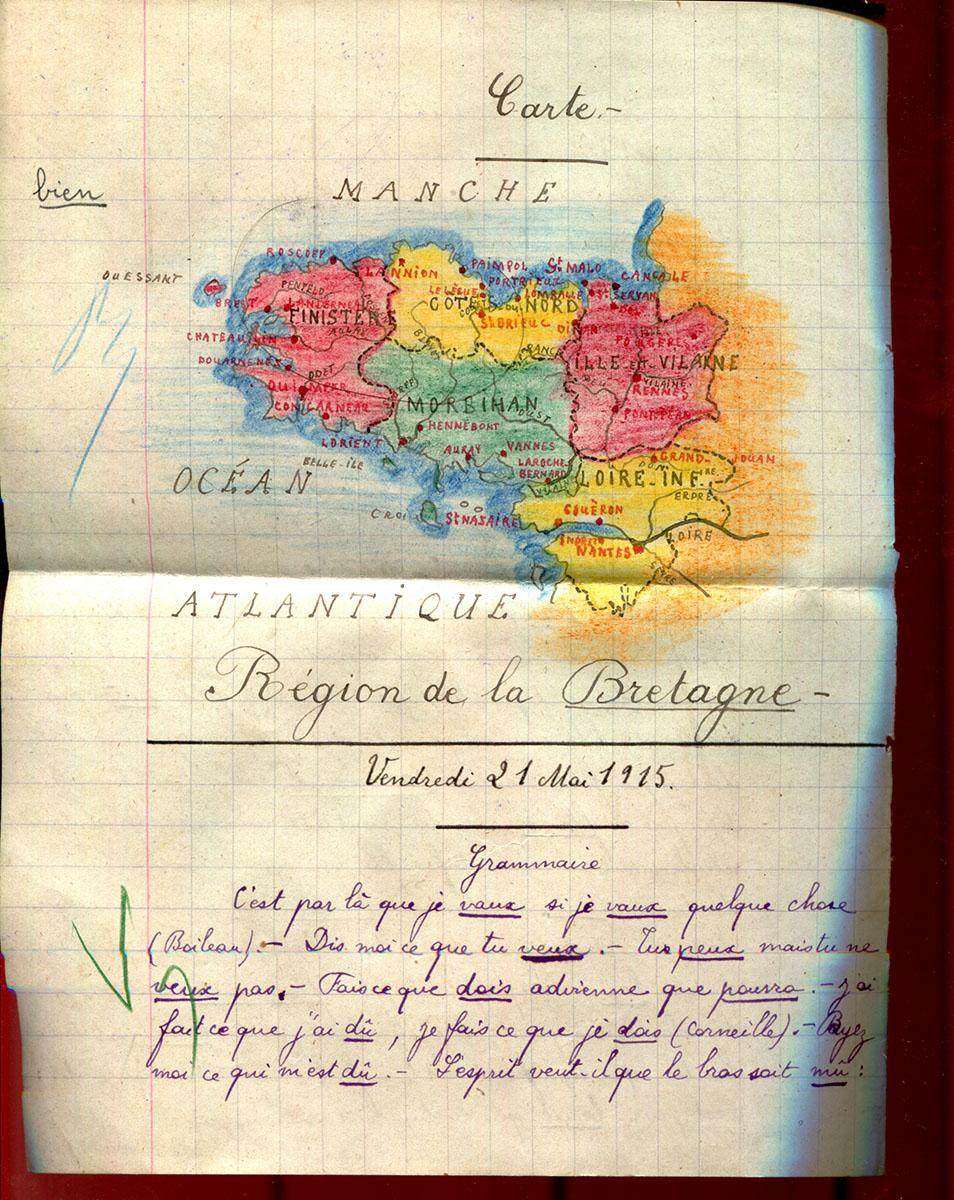 Carte.-
bien
MANCHE
OUESSANT
ROSCOFF
LANNION
PAIMPOL
St MALO
CANCALE
PORTRIEUX
LE LÉGUÉ
LAMBALLE
St SERVAN
BREST
LANDERNEAU
FINISTÈRE
CÔTES DU NORD
St BRIEUC
DINAN
RANCE
FOUGÈRES
ILLE et VILAINE
CHATEAULIN
DOUARNENEZ
ODET
QUIMPER
CONCARNEAU
VILAINE
RENNES
MORBIHAN
OUST
PONT-PÉAN
HENNEBONT
LORIENT
AURAY
VANNES
BELLE-ÎLE
LAROCHE
BERNARD
GRAND-JOUAN
OCÉAN
LOIRE-INFre.
ERDRE
CROI
St NASAIRE
COUËRON
INDRET
NANTES
LOIRE
ATLANTIQUE
Région de la Bretagne -
Vendredi 21 Mai 1915.
Grammaire
C'est par là que je vaux si je vaux quelque chose
(Boileau). - Dis moi ce que tu veux . - Tu peux mais tu ne
veux pas. - Fais ce que dois advienne que pourra. - J'ai
fait ce que j'ai dû, je fais ce que je dois (Corneille). - Payez
moi ce qui m'est dû. - L'esprit veut-il que le bras soit mû :